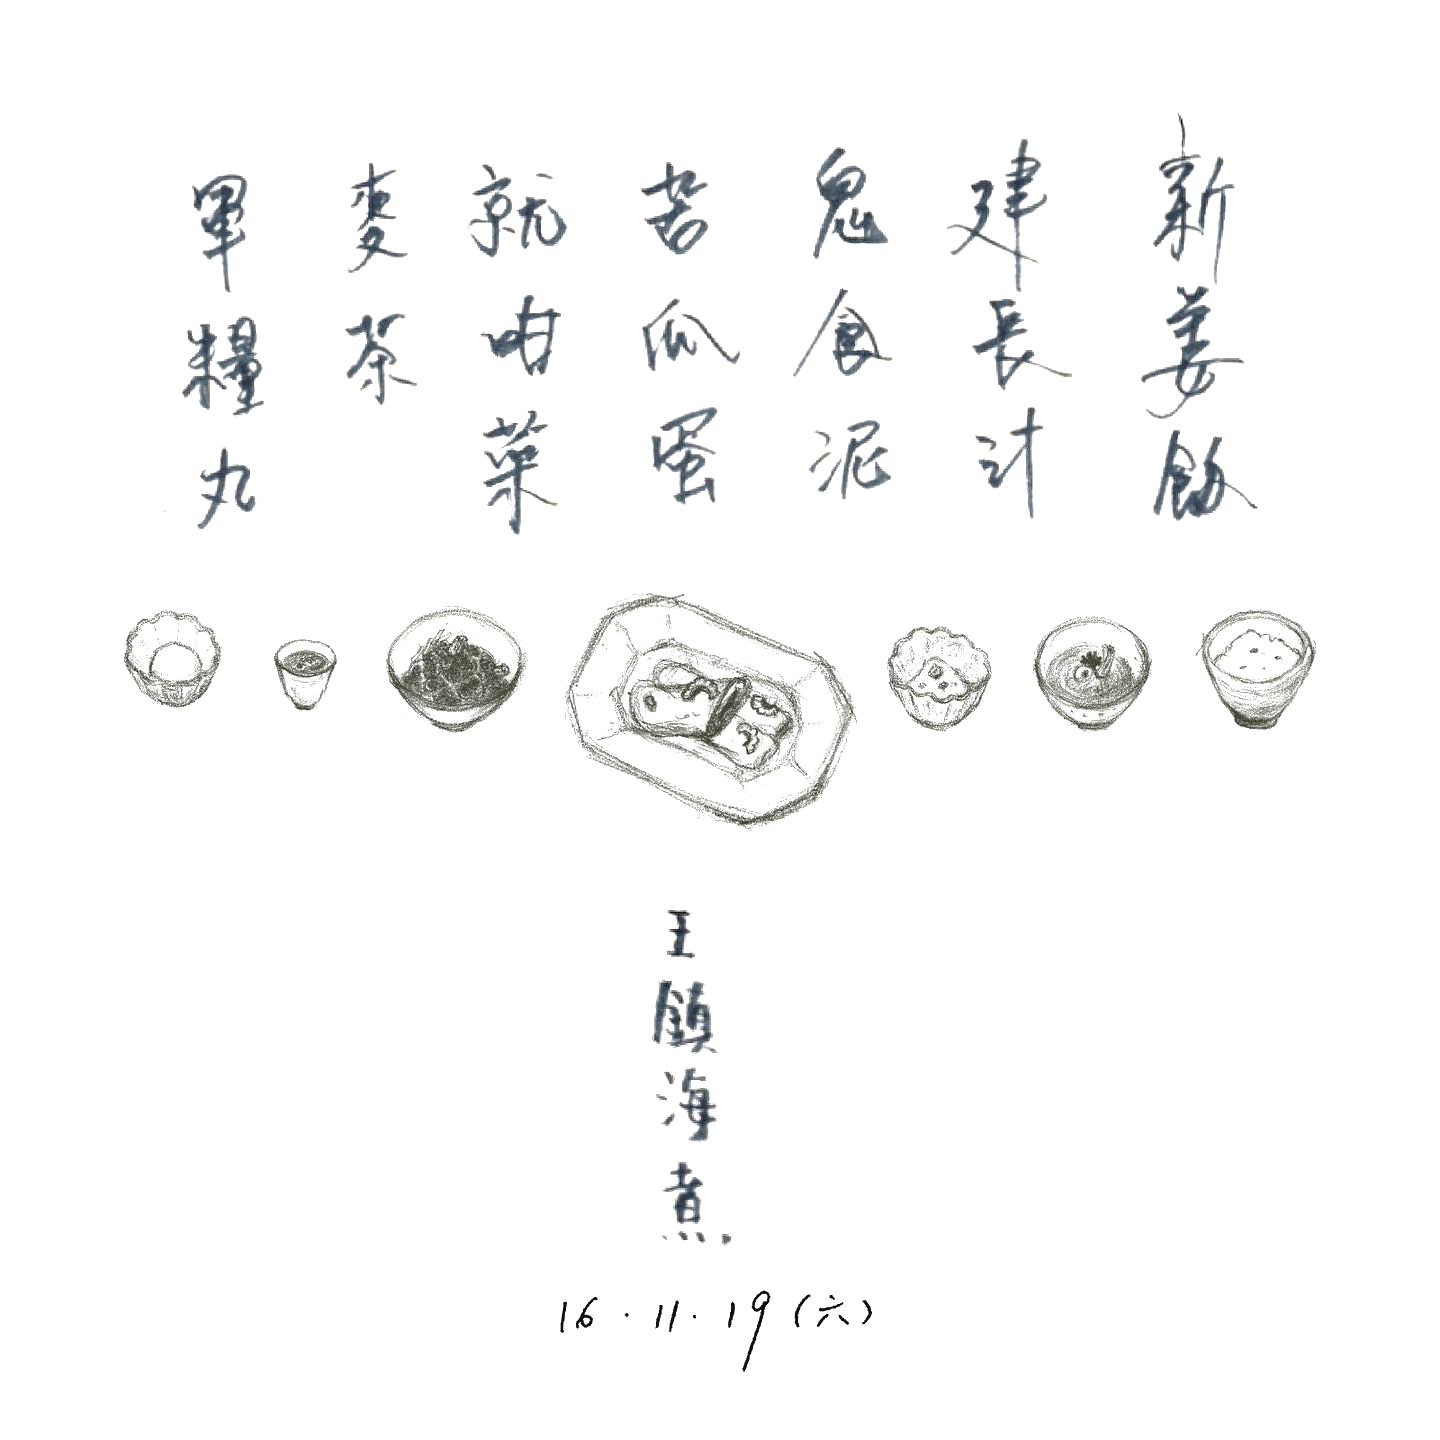 新姜飯
建長汁
鬼食泥
苦瓜蛋
就咁菜
麥茶
軍糧丸
王鎮海煮
16.11.19(六)